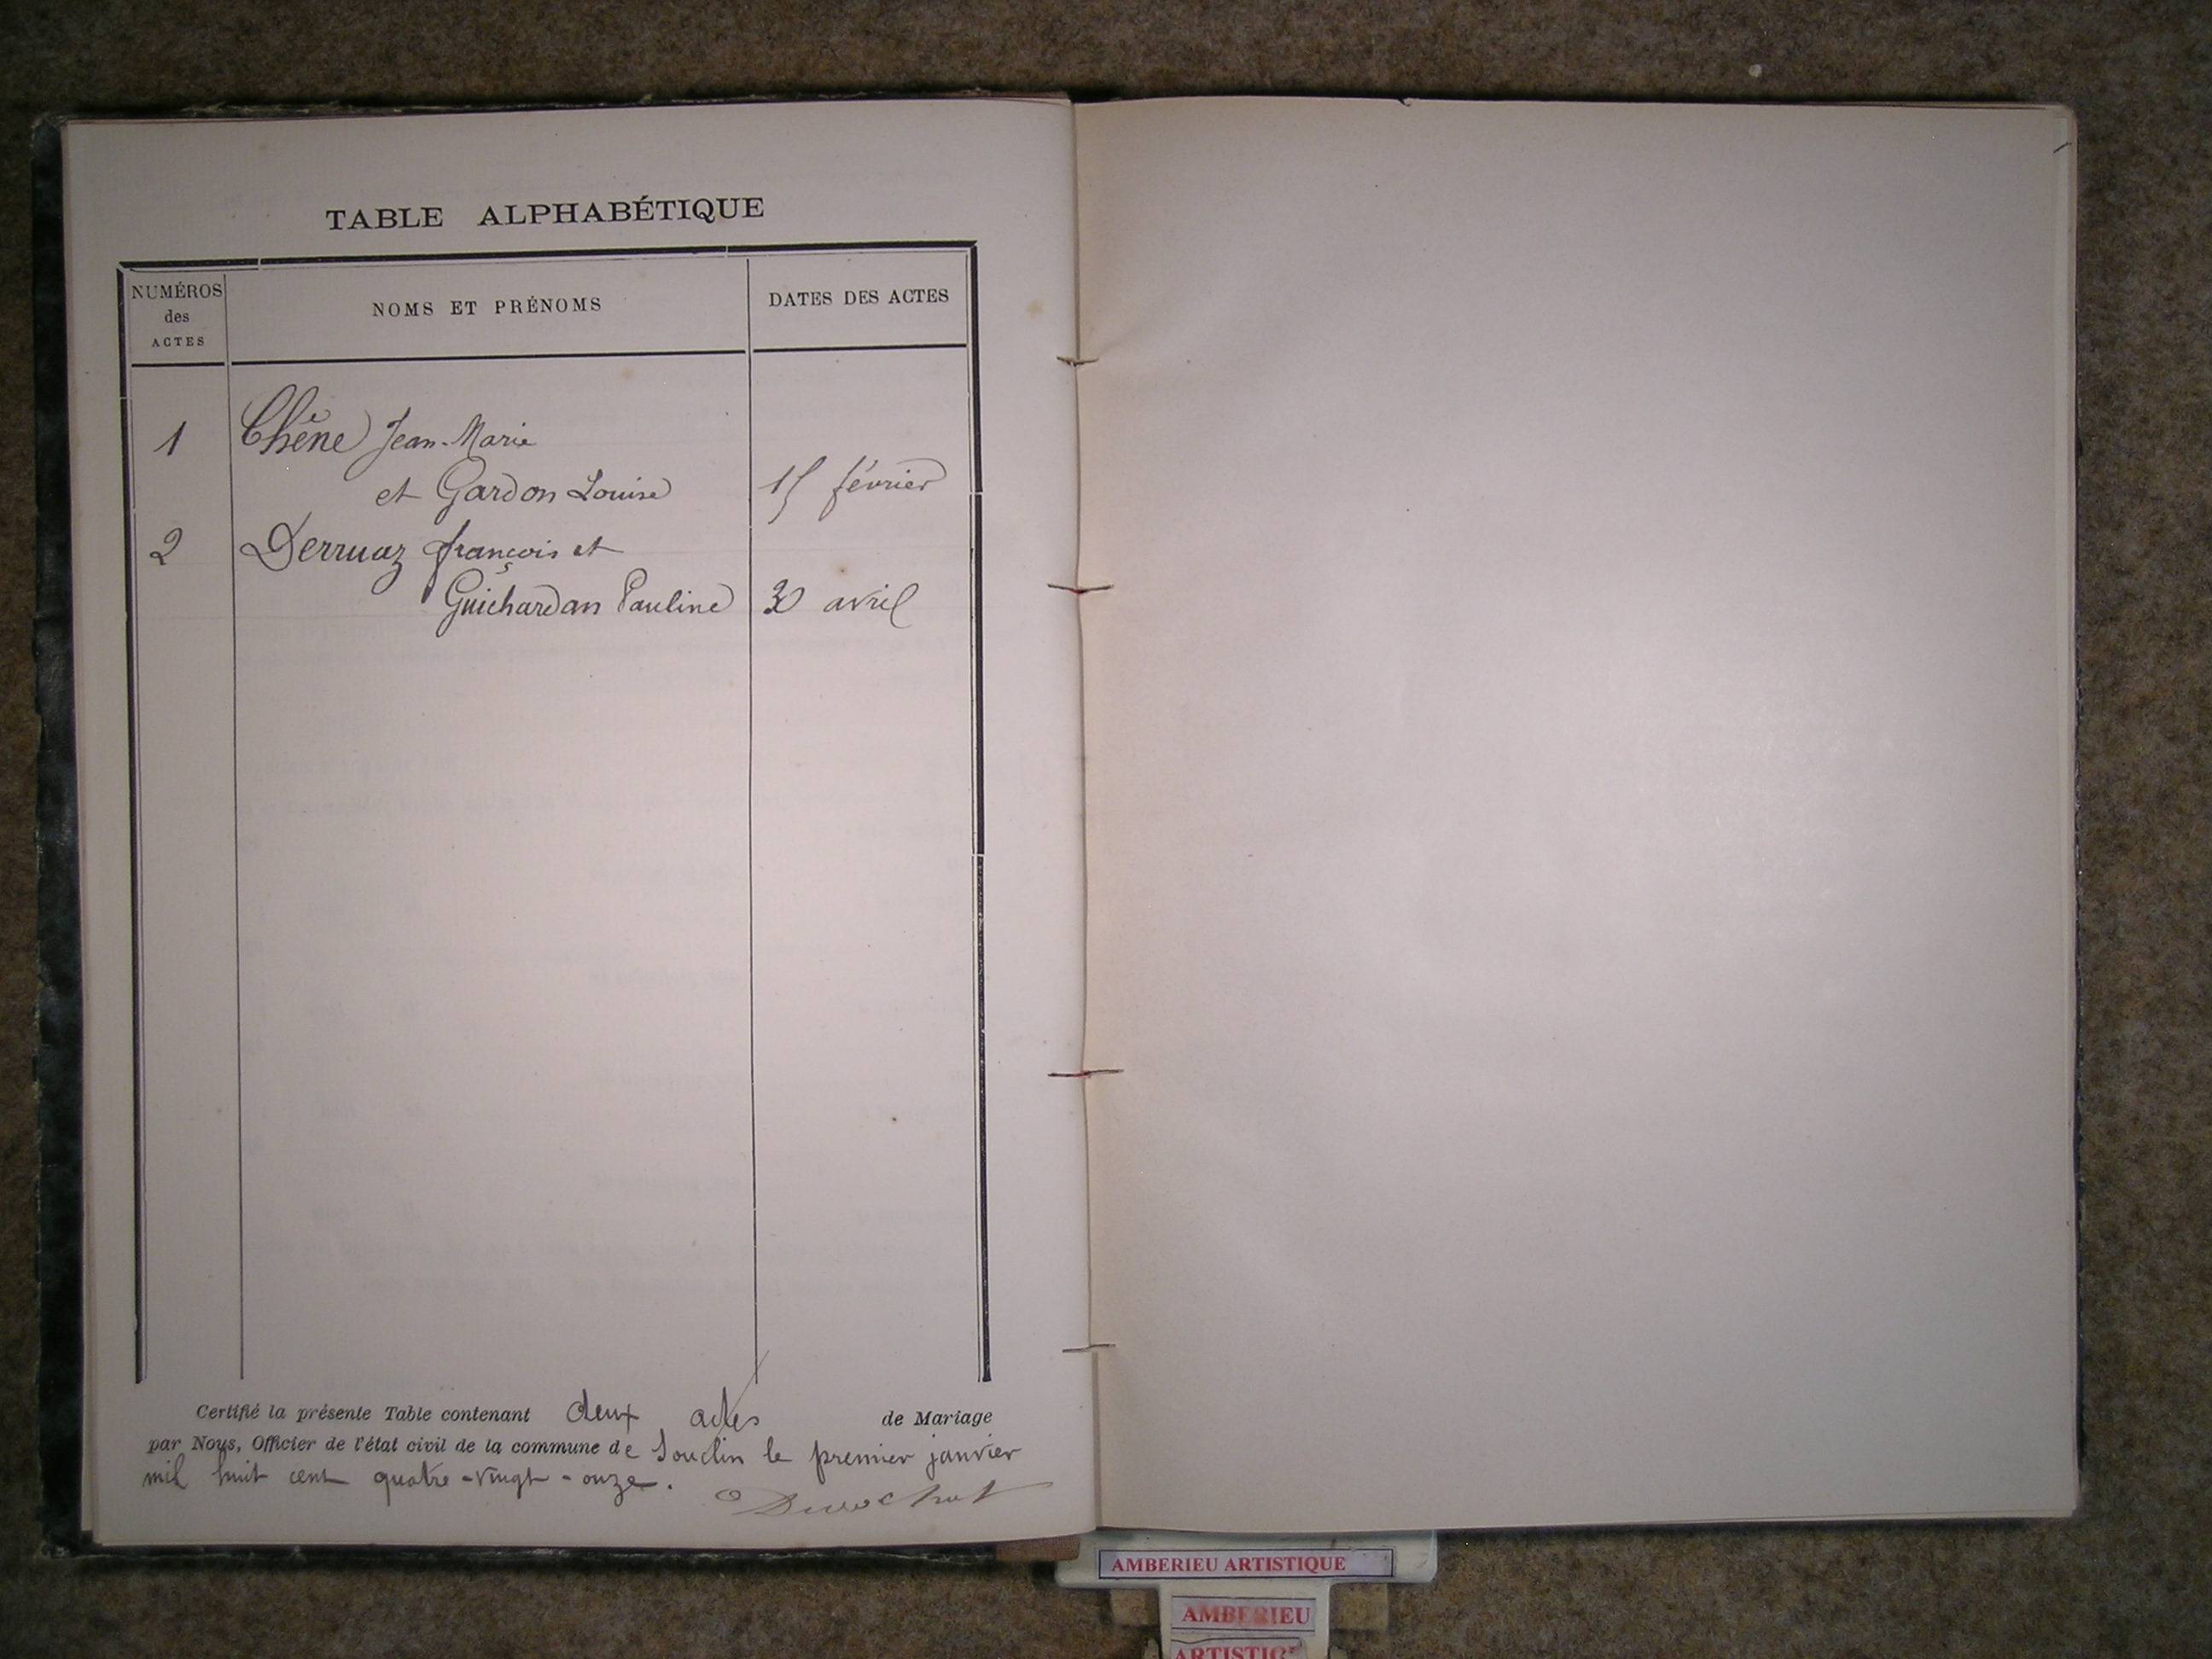 TABLE ALPHABÉTIQUE
NUMÉROS
des
ACTES
NOMS ET PRÉNOMS
DATES DES ACTES
1 Chêne Jean-Marie
et Gardon Louise 15 février
2 Derruaz françois et
Guichardan Pauline 30 avril
Certifié la présente Table contenant deux actes de Mariage
par Nous, Officier de l'état civil de la commune de Souclin le premier janvier
mil huit cent quatre-vingt-onze.
AMBERIEU ARTISTIQUE
AMBERIEU
ARTISTIQ